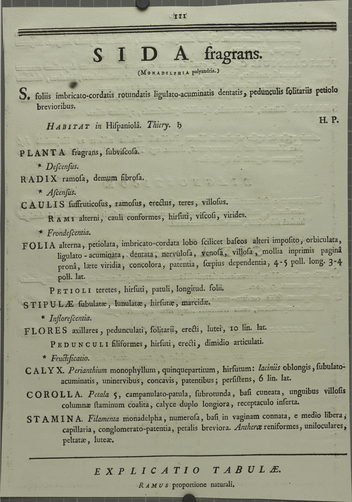 111
SIDA fragrans.
(MONADELPHIA polyandria.)
S. foliis imbricato-cordatis rotundatis ligulato-acuminatis dentatis, pedunculis solitariis petiolo
brevioribus.
H. P.
HABITAT in Hispaniolâ. Thiery. ♄
PLANTA fragrans, subviscosa.
* Descensus.
RADIX ramosa, demum fibrosa.
* Ascensus.
CAULIS suffruticosus, ramosus, erectus, teres, villosus.
RAMI alterni, cauli conformes, hirsuti, viscosi, virides.
* Frondescentia.
FOLIA alterna, petiolata, imbricato-cordata lobo scilicet baseos alteri imposito, orbiculata,
ligulato-acuminata, dentata, nervulosa, venosa, villosa, mollia inprimis paginâ
pronâ, læte viridia, concolora, patentia, sæpius dependentia, 4-5 poll. long. 3-4
poll. lat.
PETIOLI teretes, hirsuti, patuli, longitud. folii.
STIPULÆ subulatæ, lunulatæ, hirsutæ, marcidæ.
* Inflorescentia.
FLORES axillares, pedunculati, solitarii, erecti, lutei, 10 lin. lat.
PEDUNCULI filiformes, hirsuti, erecti, dimidio articulati.
* Fructificatio.
CALYX. Perianthium monophyllum, quinquepartitum, hirsutum: laciniis oblongis, subulato-
acuminatis, uninervibus, concavis, patentibus; persistens, 6 lin. lat.
COROLLA. Petala 5, campanulato-patula, subrotunda, basi cuneata, unguibus villosis
columnæ staminum coalita, calyce duplo longiora, receptaculo inserta.
STAMINA. Filamenta monadelpha, numerosa, basi in vaginam connata, e medio libera,
capillaria, conglomerato-patentia, petalis breviora. Antheræ reniformes, uniloculares,
peltatæ, luteæ.
EXPLICATIO TABULÆ.
RAMUS proportione naturali.